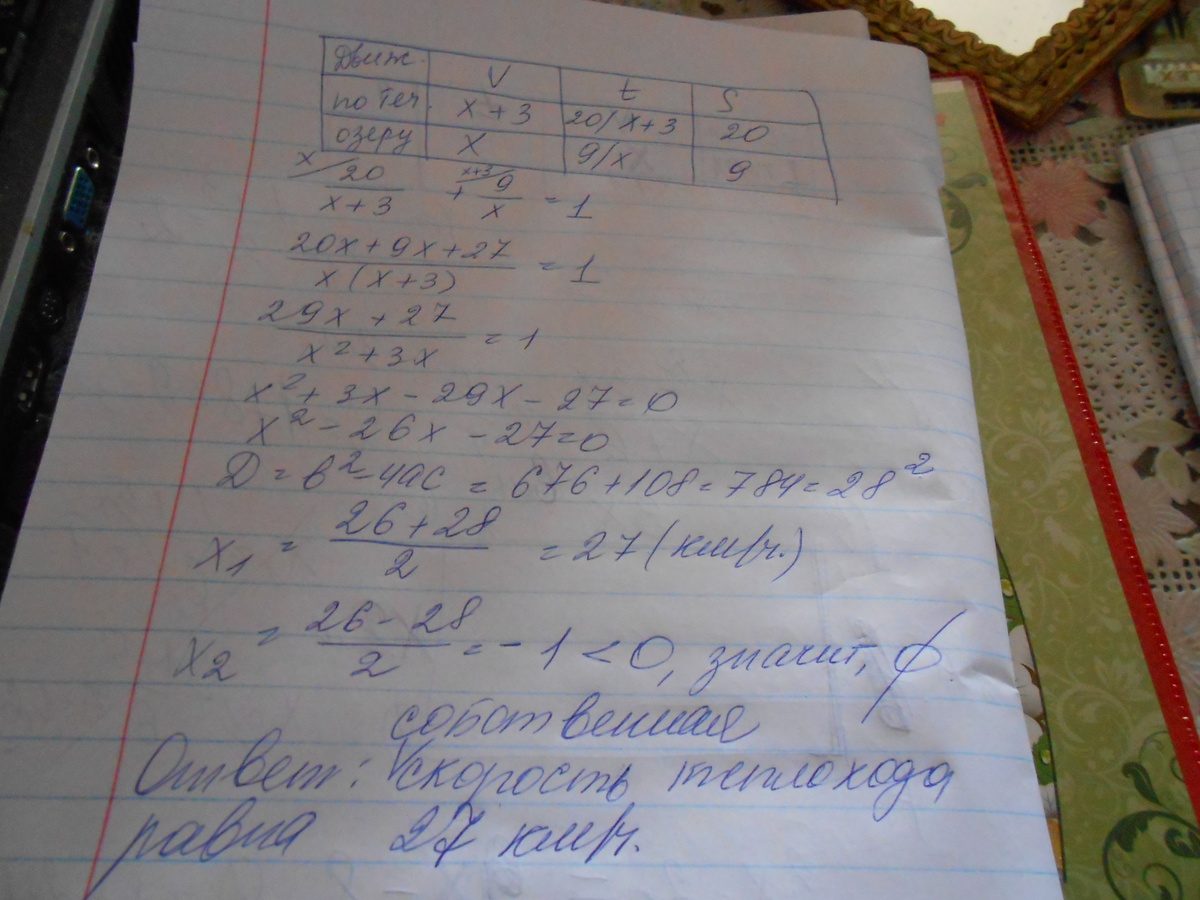 Движ. V t S
по теч. x+3 20/x+3 20
озеру x 9/x 9
x/ 20/(x+3) + x+3/ 9/x = 1
(20x+9x+27)/(x(x+3)) = 1
(29x+27)/(x²+3x) = 1
x²+3x-29x-27=0
x²-26x-27=0
Д=в²-4ас = 676+108=784=28²
x₁ = (26+28)/2 = 27(км/ч.)
x₂ = (26-28)/2 = -1<0, значит, ∅
собственная
Ответ: Vскорость теплохода
равна 27 км/ч.